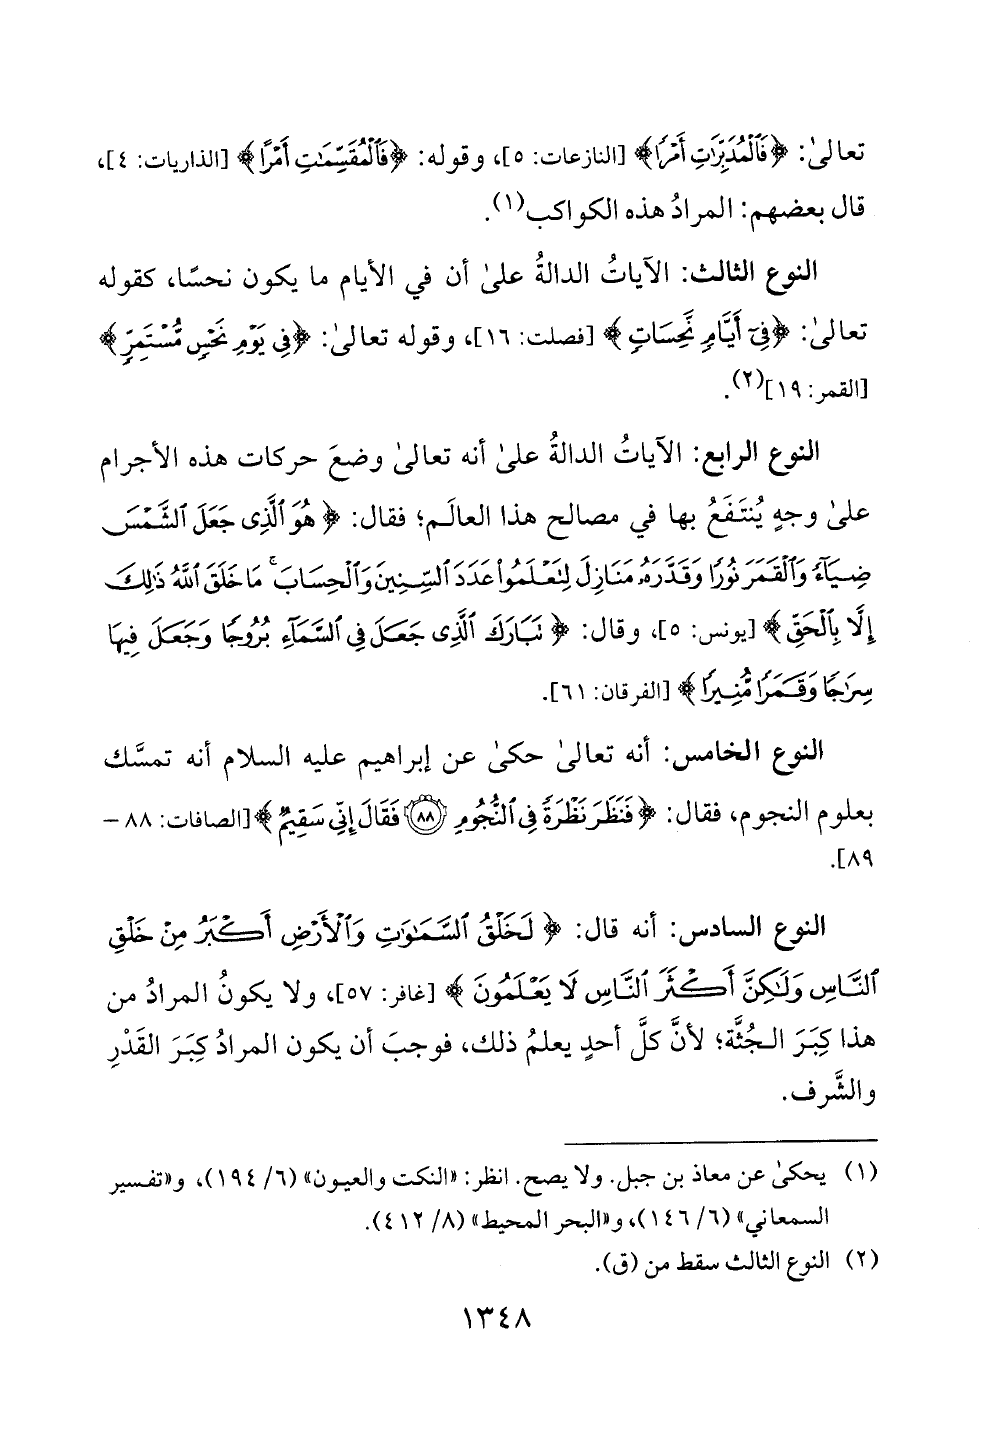 تعالىٰ: ﴿فَٱلْمُدَبِّرَٰتِ أَمْرًا﴾ [النازعات: ٥]، وقوله: ﴿فَٱلْمُقَسِّمَٰتِ أَمْرًا﴾ [الذاريات: ٤]،
قال بعضهم: المرادُ هذه الكواكب(١).
النوع الثالث: الآياتُ الدالةُ علىٰ أن في الأيام ما يكون نحسًا، كقوله
تعالىٰ: ﴿فِىٓ أَيَّامٍ نَّحِسَاتٍ﴾ [فصلت: ١٦]، وقوله تعالىٰ: ﴿فِى يَوْمِ نَحْسٍ مُّسْتَمِرٍّ﴾
[القمر: ١٩](٢).
النوع الرابع: الآياتُ الدالةُ علىٰ أنه تعالىٰ وضعَ حركات هذه الأجرام
علىٰ وجهٍ يُنتَفَعُ بها في مصالح هذا العالَم؛ فقال: ﴿هُوَ ٱلَّذِى جَعَلَ ٱلشَّمْسَ
ضِيَآءً وَٱلْقَمَرَ نُورًا وَقَدَّرَهُۥ مَنَازِلَ لِتَعْلَمُوا۟ عَدَدَ ٱلسِّنِينَ وَٱلْحِسَابَ ۚ مَا خَلَقَ ٱللَّهُ ذَٰلِكَ
إِلَّا بِٱلْحَقِّ﴾ [يونس: ٥]، وقال: ﴿تَبَارَكَ ٱلَّذِى جَعَلَ فِى ٱلسَّمَآءِ بُرُوجًا وَجَعَلَ فِيهَا
سِرَٰجًا وَقَمَرًا مُّنِيرًا﴾ [الفرقان: ٦١].
النوع الخامس: أنه تعالىٰ حكىٰ عن إبراهيم عليه السلام أنه تمسَّك
بعلوم النجوم، فقال: ﴿فَنَظَرَ نَظْرَةً فِى ٱلنُّجُومِ ۝٨٨ فَقَالَ إِنِّى سَقِيمٌ﴾ [الصافات: ٨٨ –
٨٩].
النوع السادس: أنه قال: ﴿لَخَلْقُ ٱلسَّمَٰوَٰتِ وَٱلْأَرْضِ أَكْبَرُ مِنْ خَلْقِ
ٱلنَّاسِ وَلَٰكِنَّ أَكْثَرَ ٱلنَّاسِ لَا يَعْلَمُونَ﴾ [غافر: ٥٧]، ولا يكونُ المرادُ من
هذا كِبَرَ الجُثَّة؛ لأنَّ كلَّ أحدٍ يعلمُ ذلك، فوجبَ أن يكون المرادُ كِبَرَ القَدْرِ
والشَّرف.
(١) يحكىٰ عن معاذ بن جبل. ولا يصح. انظر: «النكت والعيون» (٦/ ١٩٤)، و«تفسير
السمعاني» (٦/ ١٤٦)، و«البحر المحيط» (٨/ ٤١٢).
(٢) النوع الثالث سقط من (ق).
١٣٤٨